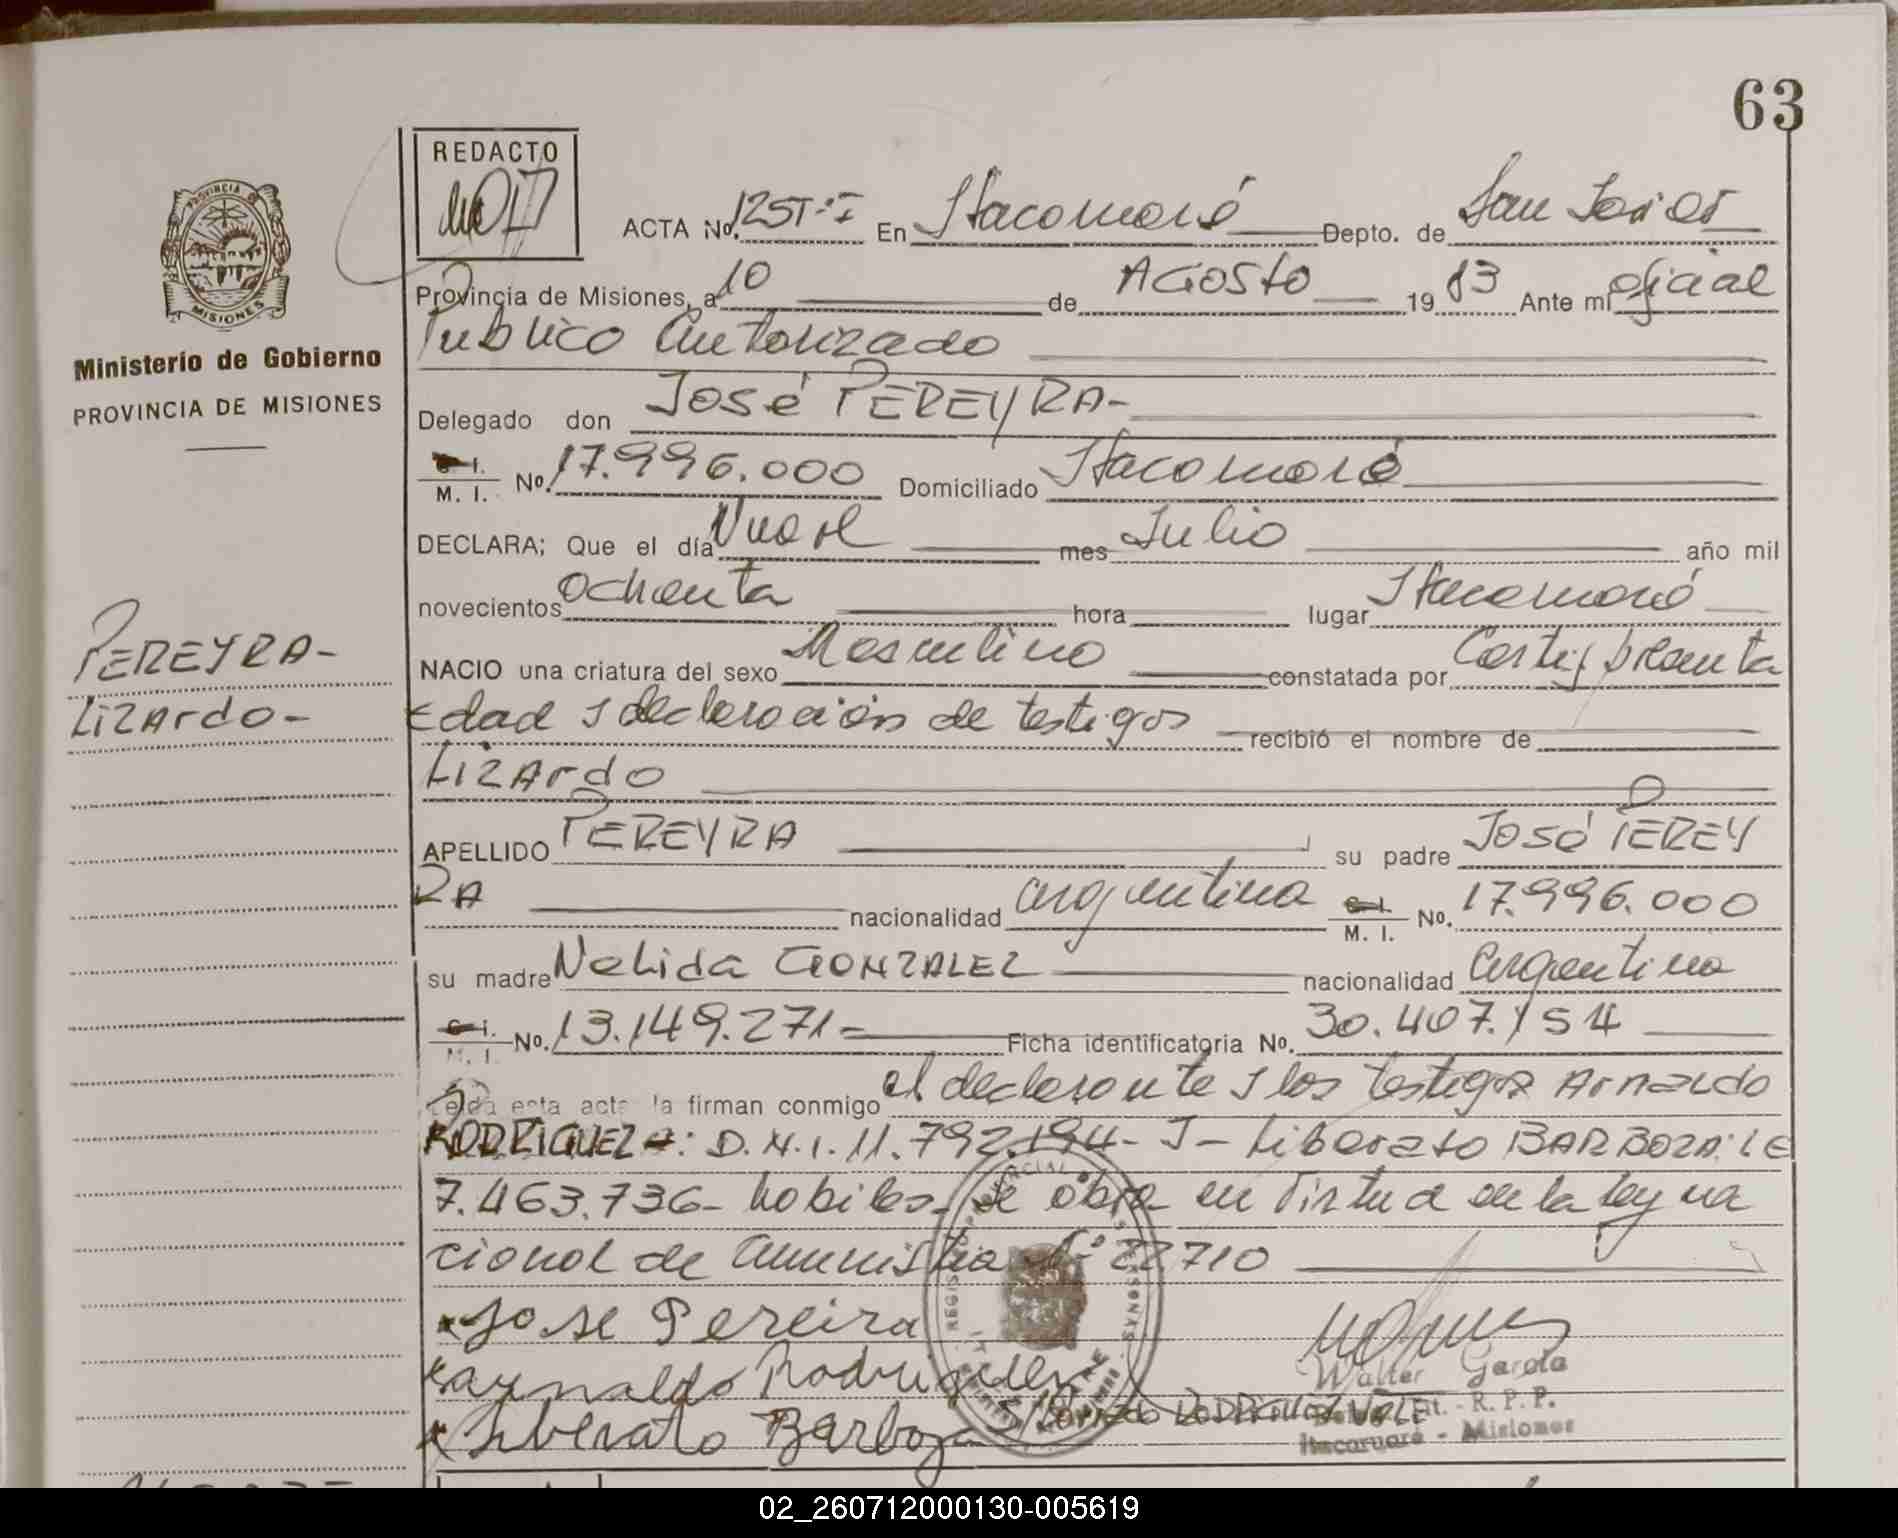 63
REDACTO
PROVINCIA
MISIONES
Ministerio de Gobierno
PROVINCIA DE MISIONES
ACTA Nº. 125T:I En Itacaruaré Depto. de San Javier
Provincia de Misiones, a 10 de AGOSTO 1983 Ante mi oficial
Publico Autorizado
Delegado don José PEREYRA-
C. I. / M. I. Nº. 17.996.000 Domiciliado Itacaruaré
DECLARA; Que el día Nueve mes Julio año mil
novecientos ochenta hora lugar Itacaruaré
NACIO una criatura del sexo Masculino constatada por
Edad y declaración de testigos recibió el nombre de
LIZArdo
PEREYRA-
LIZArdo-
APELLIDO PEREYRA su padre JOSÉ PEREY
RA nacionalidad argentina C. I. / M. I. Nº. 17.996.000
su madre Nelida GONZALEZ nacionalidad argentina
C. I. / M. I. Nº. 13.149.271- Ficha identificatoria Nº. 30.407.154
Leída esta acta la firman conmigo el declarante y los testigos Arnaldo
RODRIGUEZ: D.N.I. 11.792.194- y- Liberato BARBOZA: LE
7.463.736- habiles- se obra en virtud de la ley na
cional de amnistia Nº 22.710
Jose Pereira
Raynaldo Rodriguez
Liberato Barboza
S/B Arnaldo RODRIGUEZ VALE
Walter García
Deleg. Tit. - R. P. P.
Itacaruaré - Misiones
02_260712000130-005619